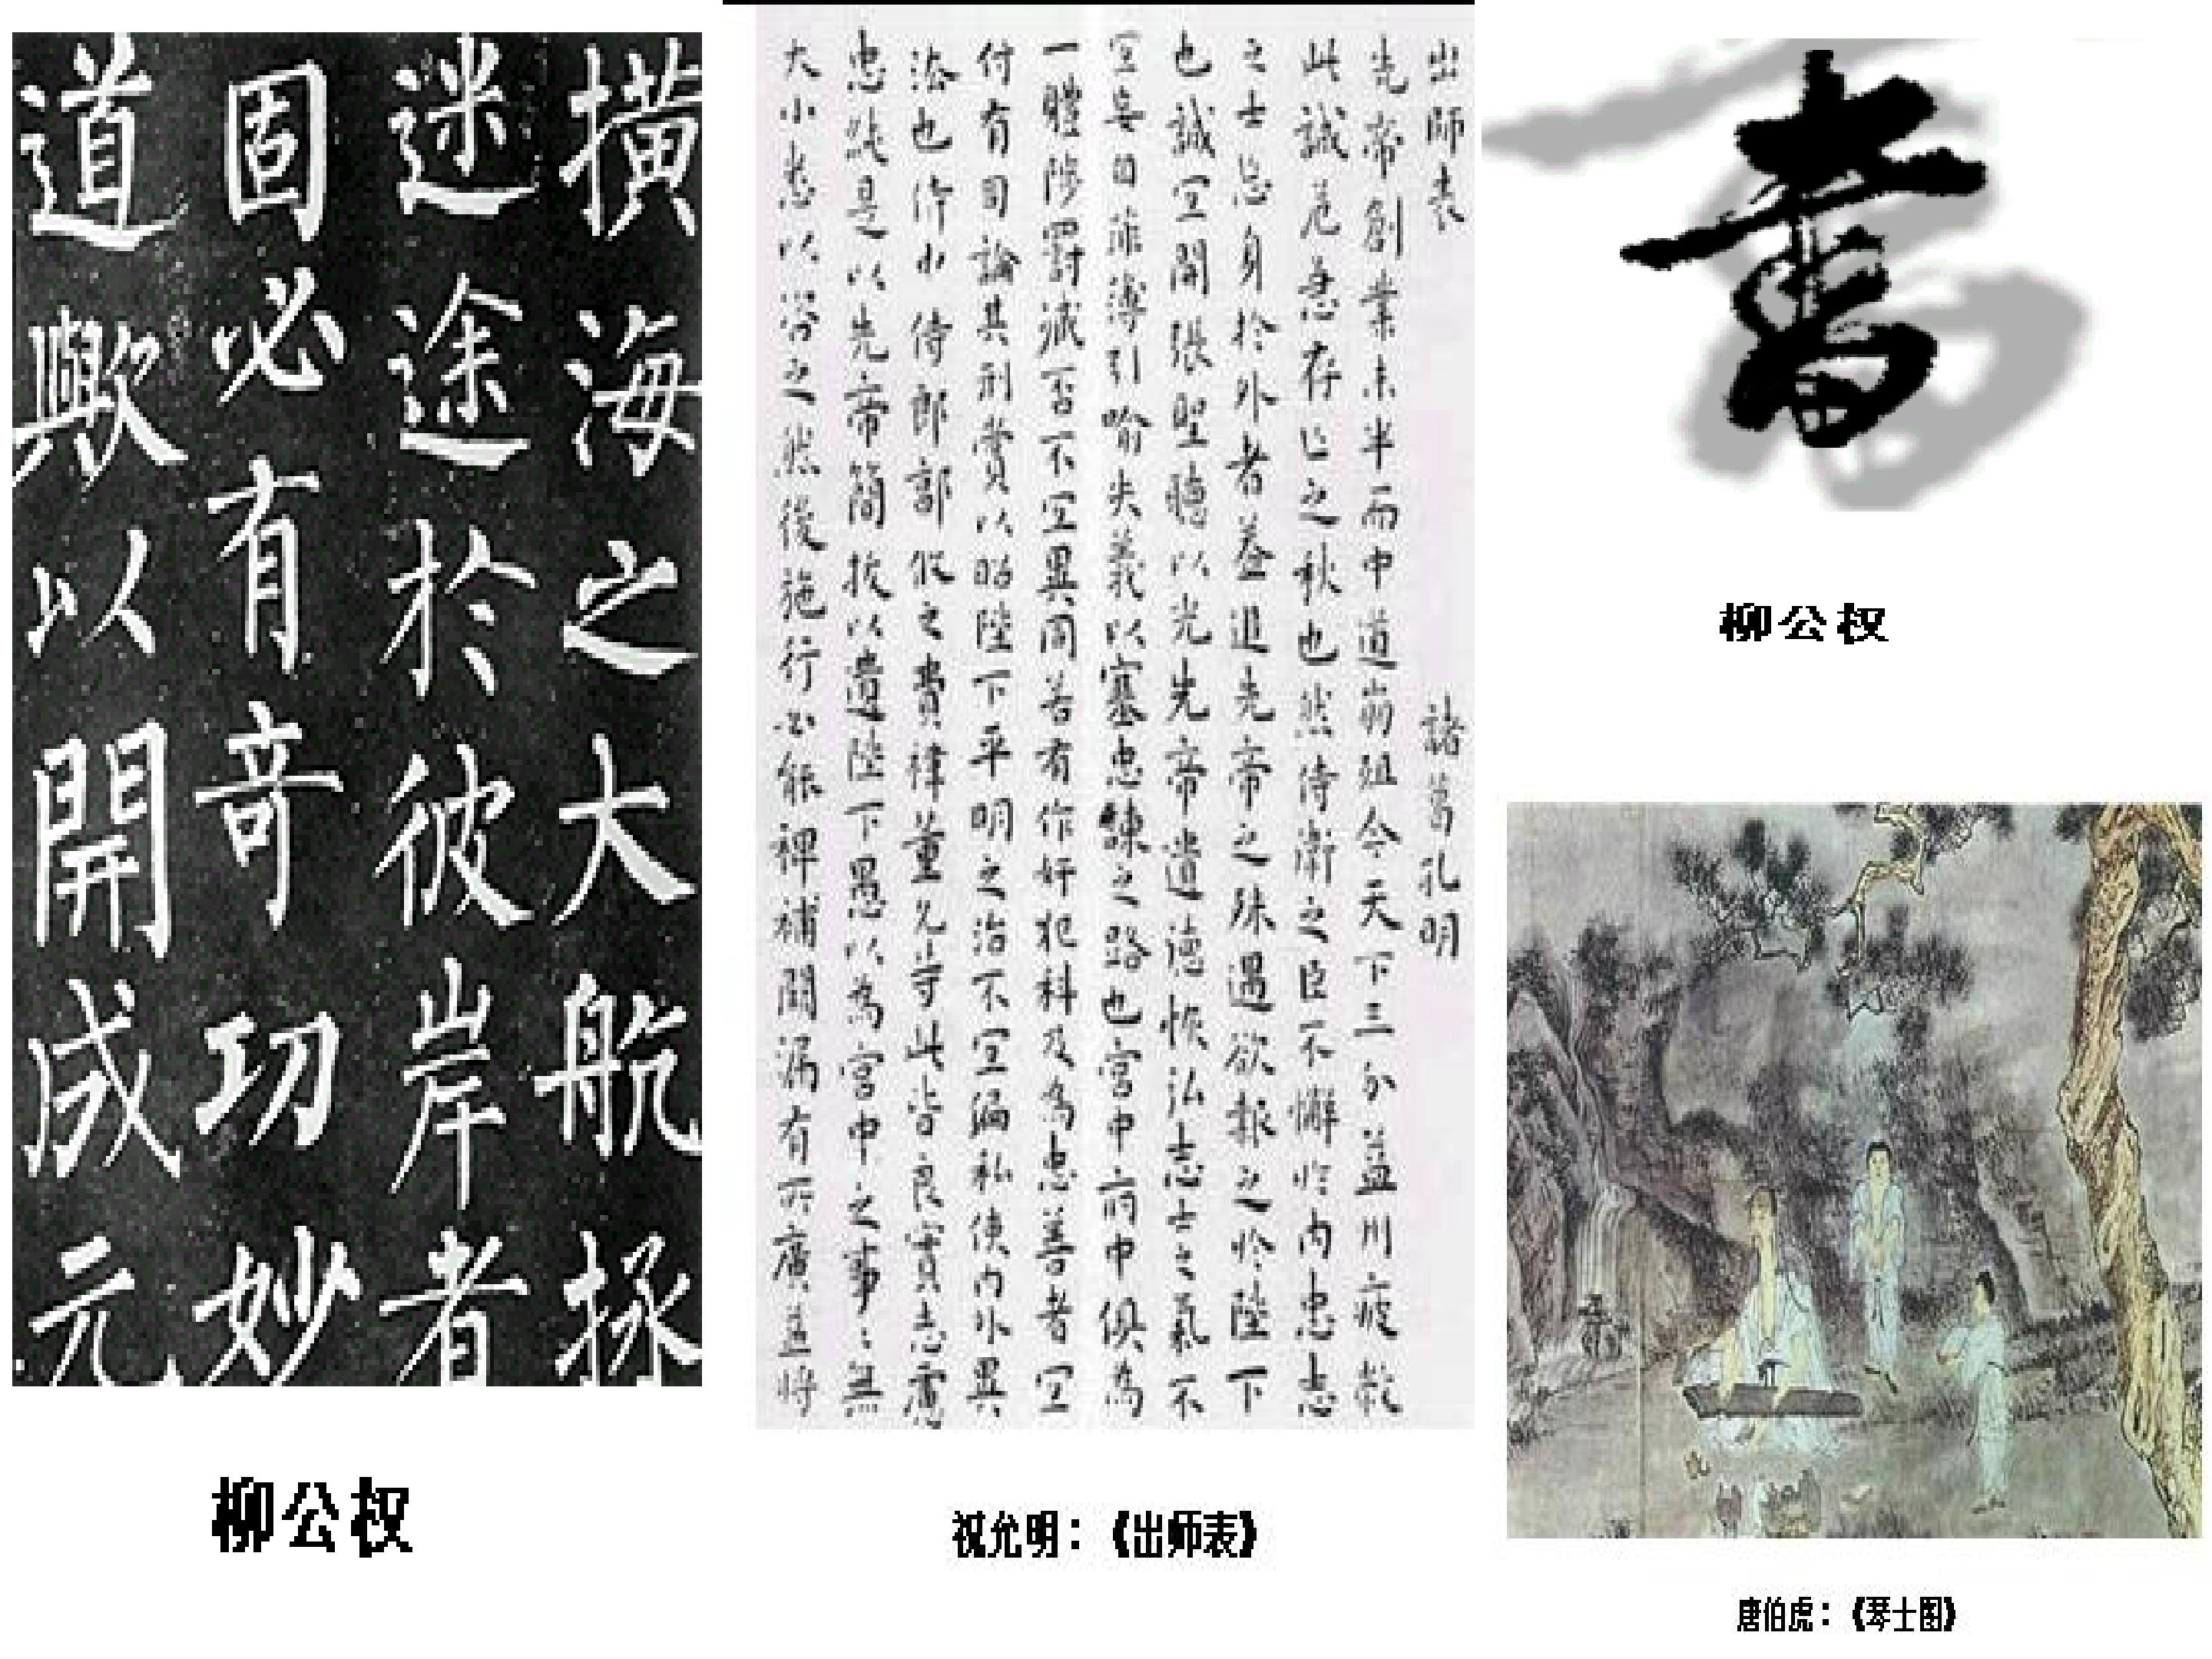 横海之大航拯
迷途於彼岸者
固必有奇功妙
道歟以開成元
柳公权
出師表 諸葛孔明
先帝創業未半而中道崩殂今天下三分益州疲敝
此誠危急存亡之秋也然侍衛之臣不懈於内忠志
之士忘身於外者蓋追先帝之殊遇欲報之於陛下
也誠宜開張聖聽以光先帝遺德恢弘志士之氣不
宜妄自菲薄引喻失義以塞忠諫之路也宮中府中俱為
一體陟罰臧否不宜異同若有作奸犯科及為忠善者宜
付有司論其刑賞以昭陛下平明之治不宜偏私使内外異
法也侍中侍郎郭攸之費禕董允等此皆良實志慮
忠純是以先帝簡拔以遺陛下愚以為宮中之事〻無
大小悉以咨之然後施行必能裨補闕漏有所廣益將
祝允明：《出师表》
書
柳公权
唐伯虎：《琴士图》